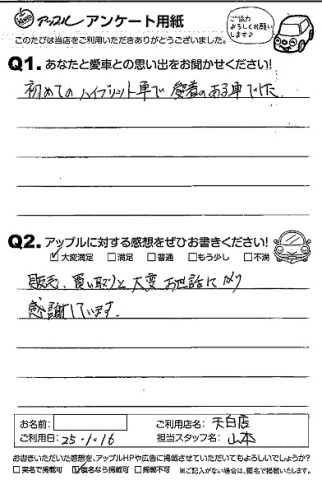 アップル アンケート用紙
ご協力
よろしくお願い
します♪
このたびは当店をご利用いただきありがとうございました。
Q1. あなたと愛車との思い出をお聞かせください!
初めてのハイブリット車で愛着のある車でした.
Q2. アップルに対する感想をぜひお書きください!
☑大変満足 □満足 □普通 □もう少し □不満
販売、買い取りと大変お世話になり
感謝しています.
お名前: ご利用店名: 天白店
ご利用日: 25.1.16 担当スタッフ名: 山本
お書きいただいた感想を、アップルHPや広告に掲載させていただいてもよろしいでしょうか?
□実名で掲載可 ☑匿名なら掲載可 □掲載不可 ※ご記入がない場合は、匿名で掲載いたします。